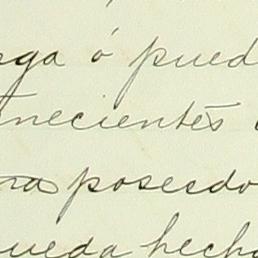 rga ó pued
necientes
ra poseedo
ueda hecha